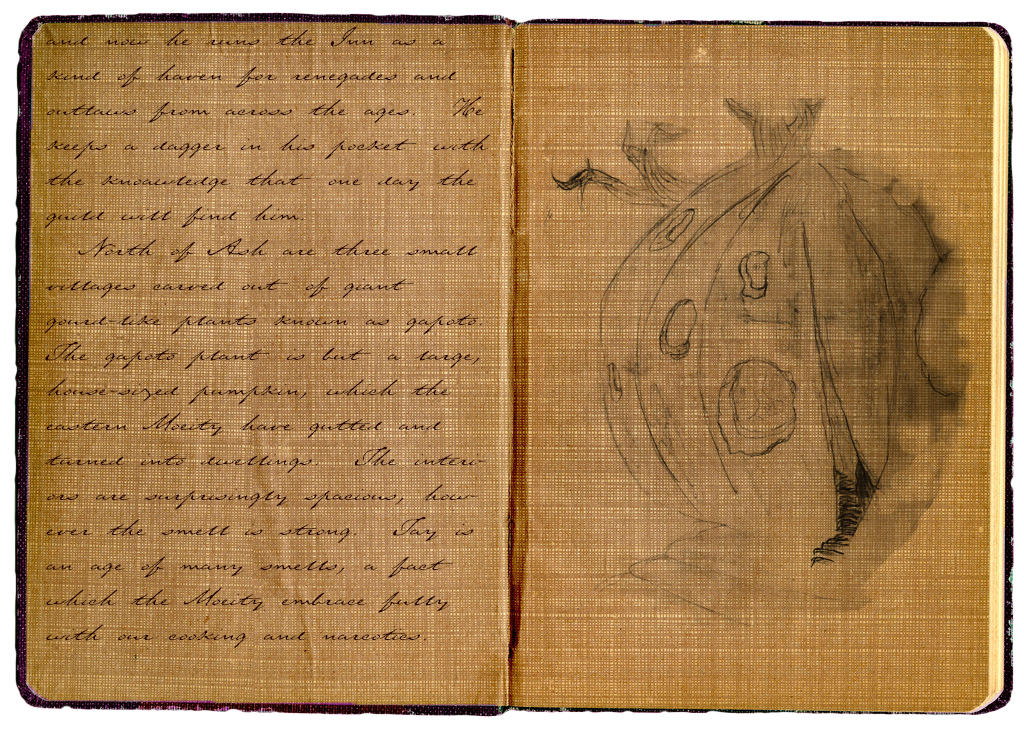 and now he runs the Inn as a
kind of haven for renegades and
outlaws from across the ages. He
keeps a dagger in his pocket with
the knoawledge that one day the
guild will find him.
North of Ash are three small
villages carved out of giant
gourd-like plants known as gapoto.
The gapoto plant is but a large,
house-sized pumpkin, which the
eastern Moeity have gutted and
turned into dwellings. The interi-
ors are surprisingly spacious, how-
ever the smell is strong. Tay is
an age of many smells, a fact
which the Moeity embrace fully
with our cooking and narcotics.